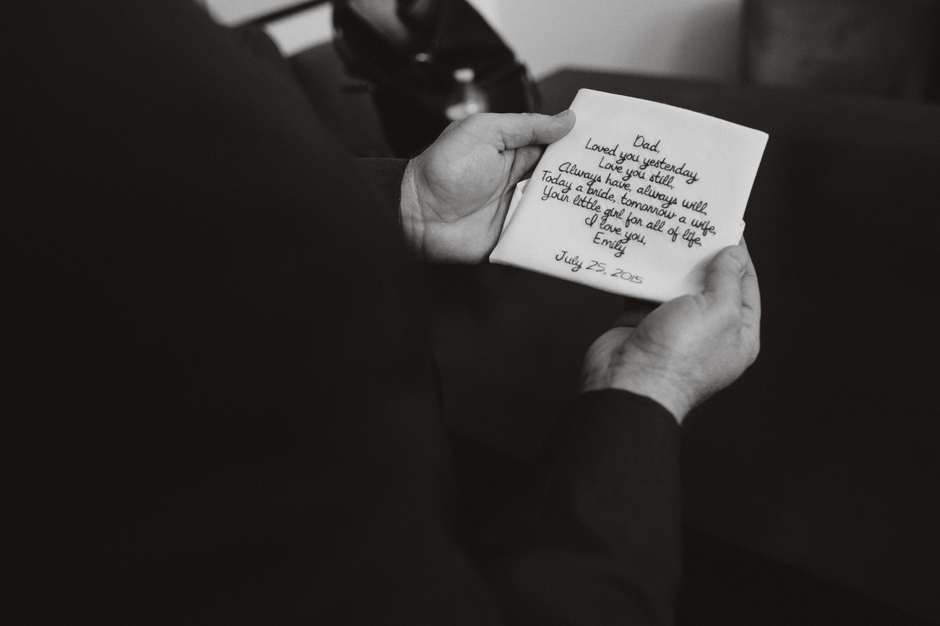 Dad,
Loved you yesterday
Love you still,
Always have, always will,
Today a bride, tomorrow a wife,
Your little girl for all of life,
I love you,
Emily
July 25, 2015